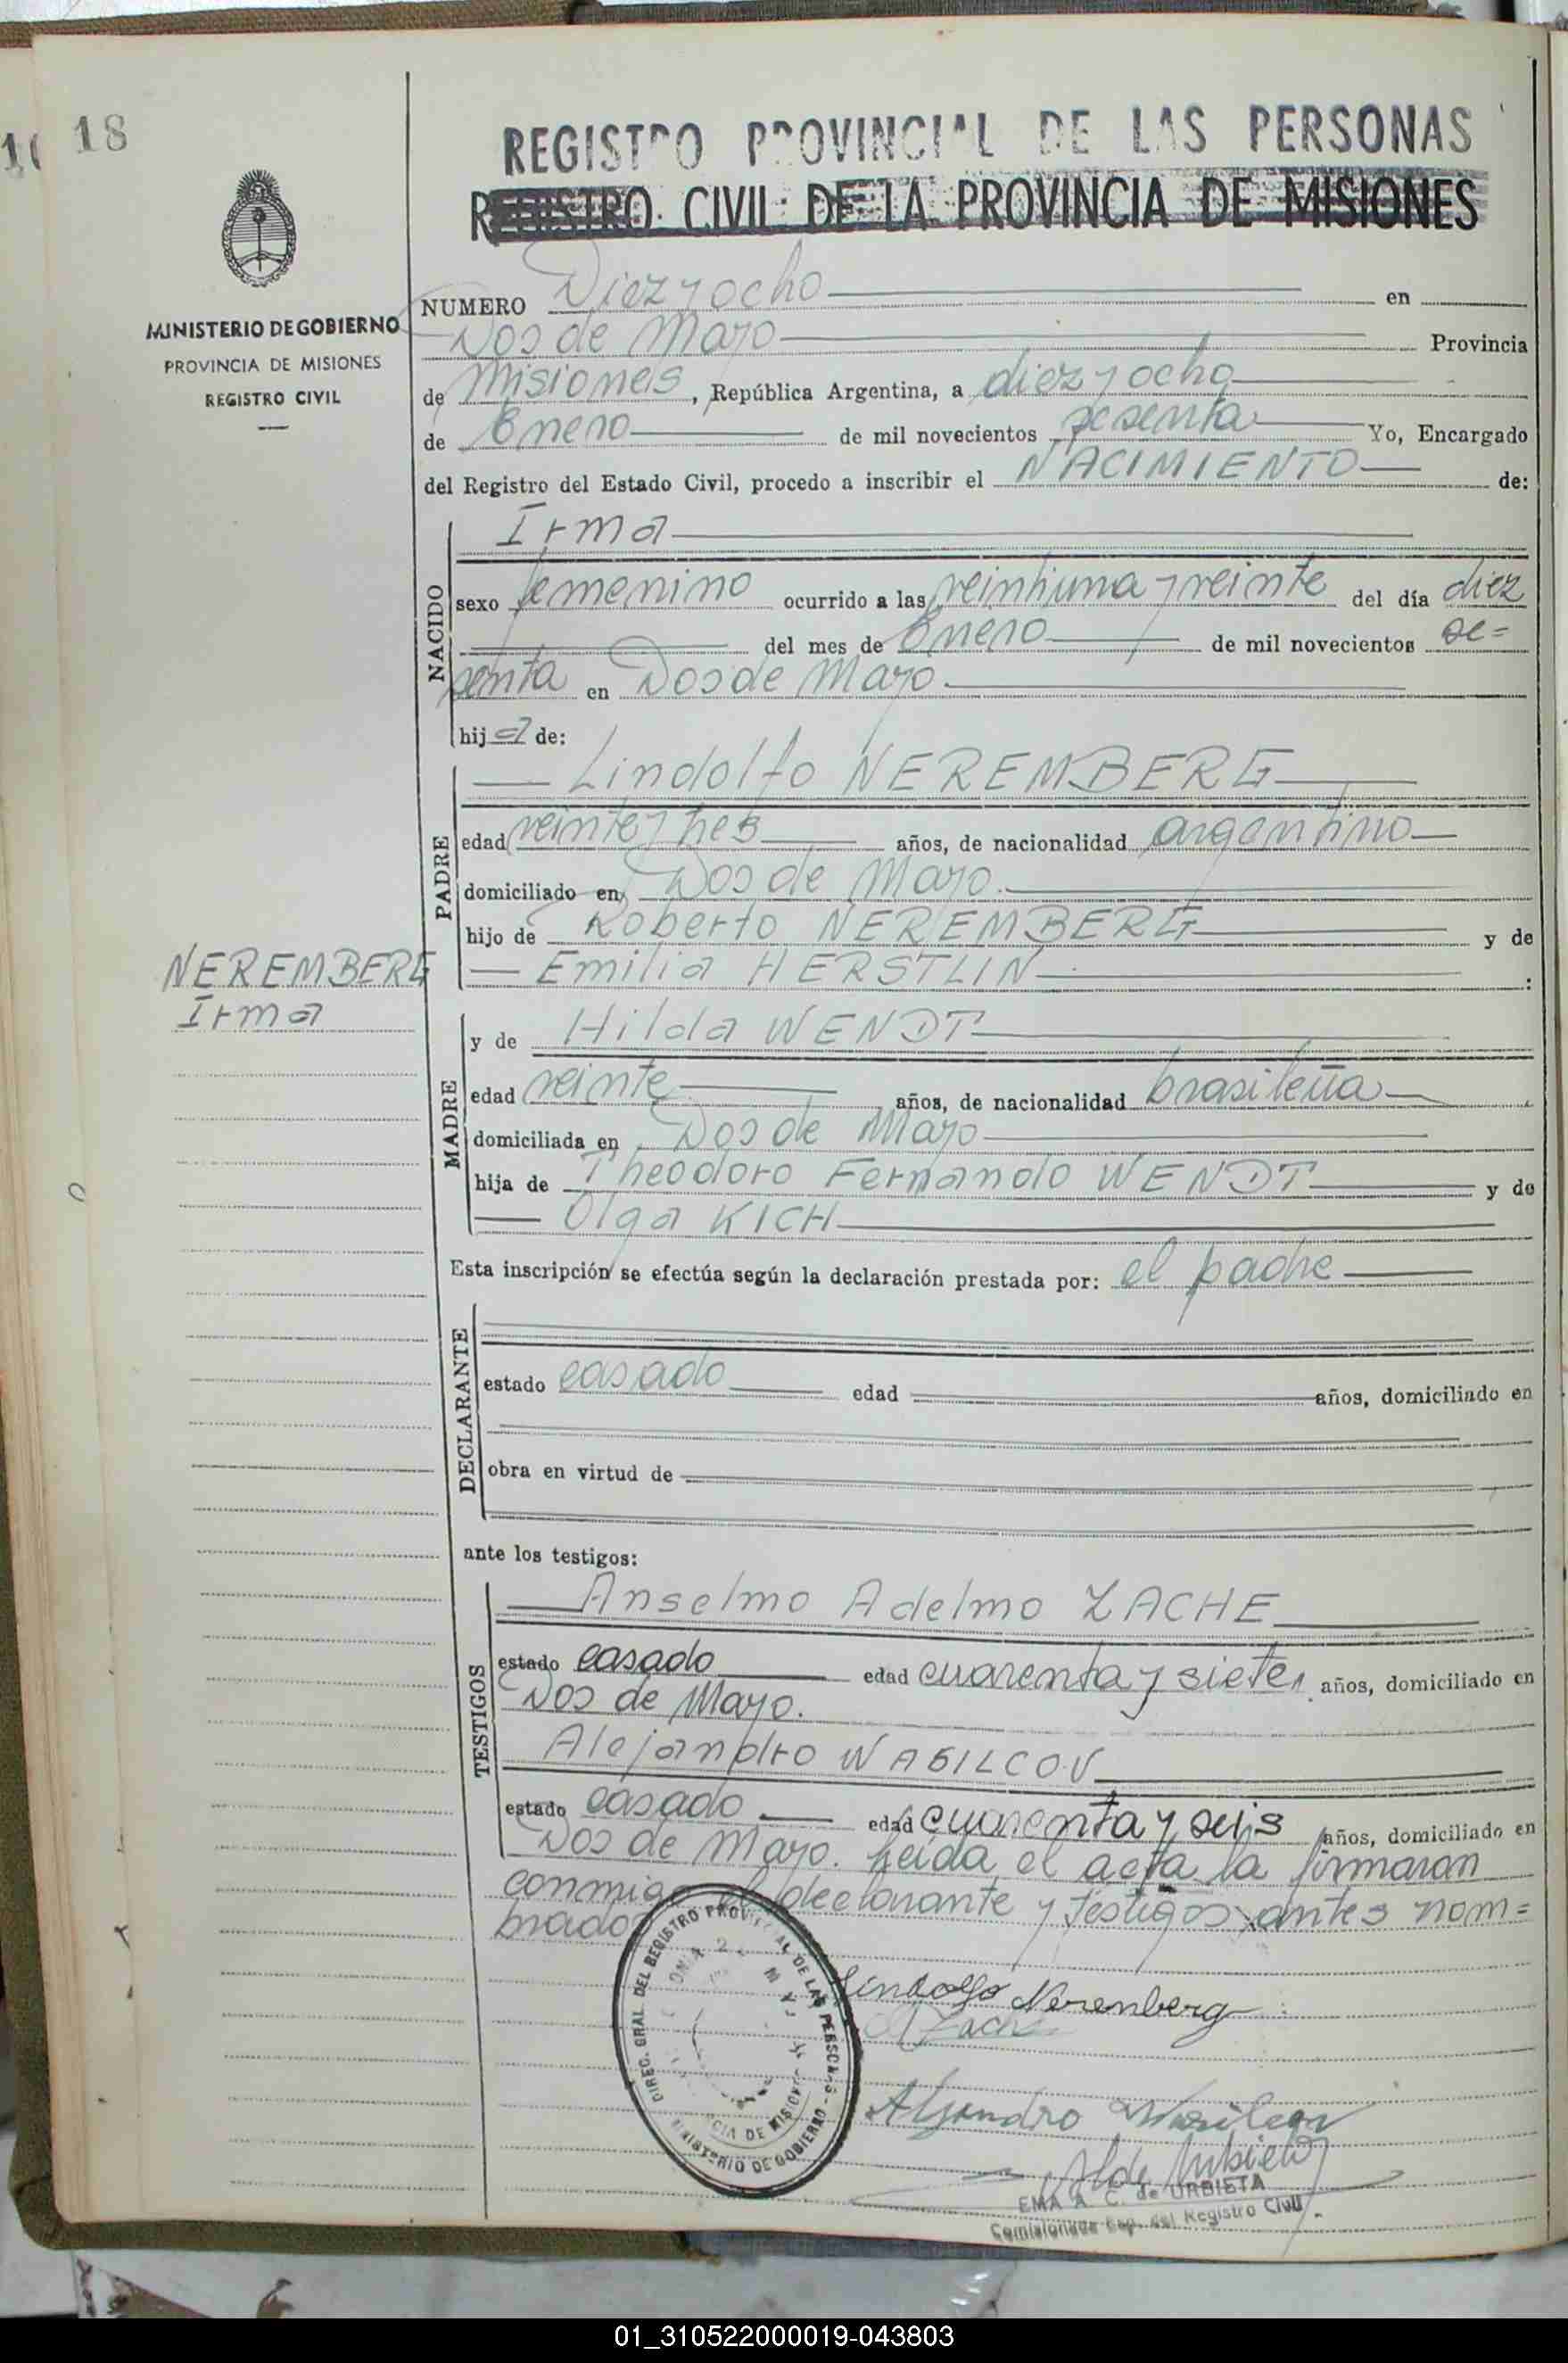 18
REGISTRO PROVINCIAL DE LAS PERSONAS
REGISTRO CIVIL DE LA PROVINCIA DE MISIONES
MINISTERIO DE GOBIERNO
PROVINCIA DE MISIONES
REGISTRO CIVIL
NUMERO Diez y ocho en
Dos de Mayo Provincia
de Misiones, República Argentina, a diez y ocho
de Enero de mil novecientos sesenta Yo, Encargado
del Registro del Estado Civil, procedo a inscribir el NACIMIENTO de:
NACIDO
Irma
sexo femenino ocurrido a las veintiuna y veinte del día diez
del mes de Enero de mil novecientos se=
senta en Dos de Mayo.
hija de:
PADRE
Lindolfo NEREMBERG
edad veinte y tres años, de nacionalidad argentino
domiciliado en Dos de Mayo.
hijo de Roberto NEREMBERG y de
Emilia HERSTLIN :
NEREMBERG
Irma
MADRE
y de Hilda WENDT
edad veinte años, de nacionalidad brasileña
domiciliada en Dos de Mayo
hija de Theodoro Fernando WENDT y de
Olga KICH
Esta inscripción se efectúa según la declaración prestada por: el padre
DECLARANTE
estado casado edad años, domiciliado en
obra en virtud de
ante los testigos:
TESTIGOS
Anselmo Adelmo ZACHE
estado casado edad cuarenta y siete, años, domiciliado en
Dos de Mayo.
Alejandro WASILCOV
estado casado edad cuarenta y seis años, domiciliado en
Dos de Mayo. Leída el acta la firmaran
conmigo el declarante y testigos antes nom=
brados
DIREC. GRAL. DEL REGISTRO PROVINCIAL DE LAS PERSONAS - MINISTERIO DE GOBIERNO
Lindolfo Nerenberg
Zache
Alejandro Wasilcov
EMA A. C. de URBIETA
Comisionada Esp. del Registro Civil
01_310522000019-043803